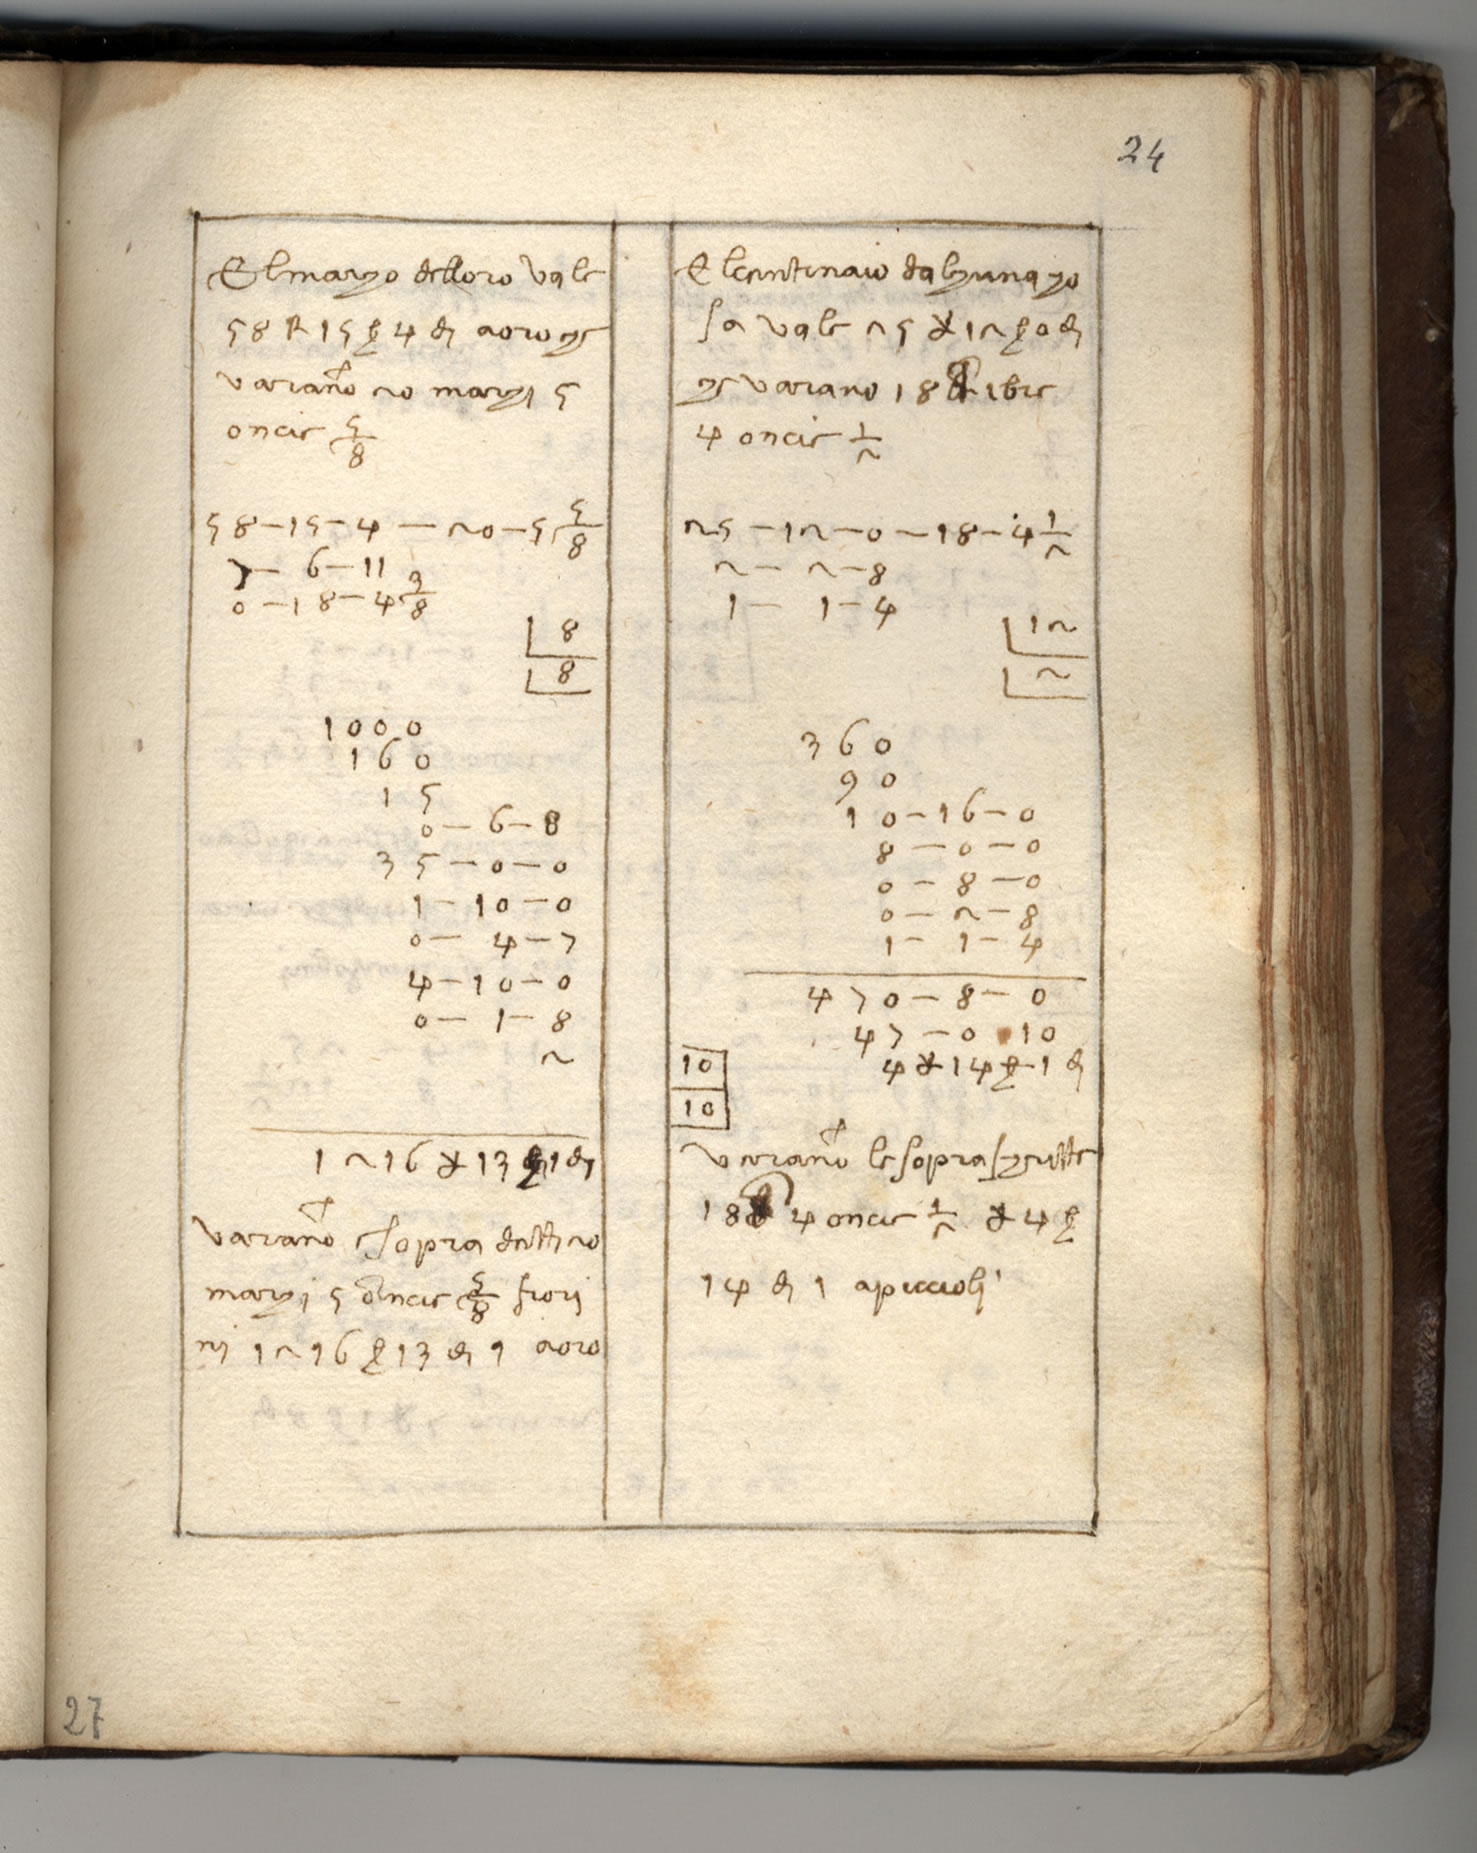 24
El marzo delloro vale
58 ₰ 15 ß 4 đ a oro che
varano 20 marzi 5
oncie 5/8
58—15—4 — 20—5 5/8
7— 6—11
0—18—4 3/8
8
8
1000
160
15
0—6—8
35—0—0
1—10—0
0— 4—7
4—10—0
0— 1—8
2
1216 13 1 đ
varano e sopra detti 20
marzi 5 oncie 5/8 fiori
ni 1216 ß 13 đ 1 a oro
El centinaio da l
sa vale 25 12 ß 0 đ
che varano 18 libre
4 oncie 1/2
25—12—0—18—4 1/2
2— 2—8
1— 1—4
12
2
360
90
10—16—0
8—0—0
0—8—0
0—2—8
1—1—4
470—8—0
47—0 10
10 4 14 ß 1 đ
10
varano le sopra schritte
18 4 oncie 1/2 4 ß
14 đ 1 a piccioli
27